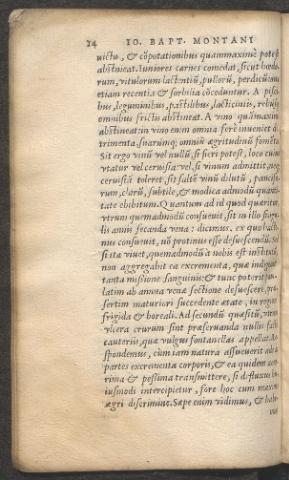 14 IO. BAPT. MONTANI
victu, & cõpotationibus quammaximè potest
abstineat. Iuniores carnes comedat, sicut hœdo-
rum, vitulorum lactentiũ, pullorũ, perdicũ: om
etiam recentia & sorbilia cõceduntur. A pisci
bus, leguminibus, pastillibus, lacticiniis, rebusq
omnibus frictis abstineat. A vino quàmaxim
abstineat: in vino enim omnia ferè inuenies d
trimenta, suarumq; omniũ ægritudinũ fomẽta
Sit ergo vinũ vel nullũ, si fieri potest, loco cuius
vtatur vel ceruisia: vel, si vinum admittit, neq
ceruisiã toleret, sit saltẽ vinũ dilutũ, paucissi
rum, clarũ, subtile, & modica admodũ quanti
tate ebibitum. Quantum ad id quod quæritur
vtrum quemadmodũ consueuit, sit in illo singu
lis annis secanda vena: dicimus, ex quo hacte
nus consueuit, nõ protinus esse desuescendũ. Sed
si ita viuet, quemadmodũ à nobis est institutũ,
non aggregabit ea excrementa, quæ indigeat
tanta missione sanguinis: & tunc poterit pau
latim ab annua venæ sectione desuescere, præ
sertim maturiori succedente ætate, in regione
frigida & boreali. Ad secundũ quæsitũ, vtrum
vlcera crurum sint præseruanda nullis factis
cauteriis, quæ vulgus fontanellas appellat: Re
spondemus, cùm iam natura assueuerit ad eas
partes excrementa corporis, & ea quidem acer
rima & pessima transmittere, si defluxus hu
iusmodi intercipietur, fore hoc cum maximo
ægri discrimine. Sæpe enim vidimus, & habe